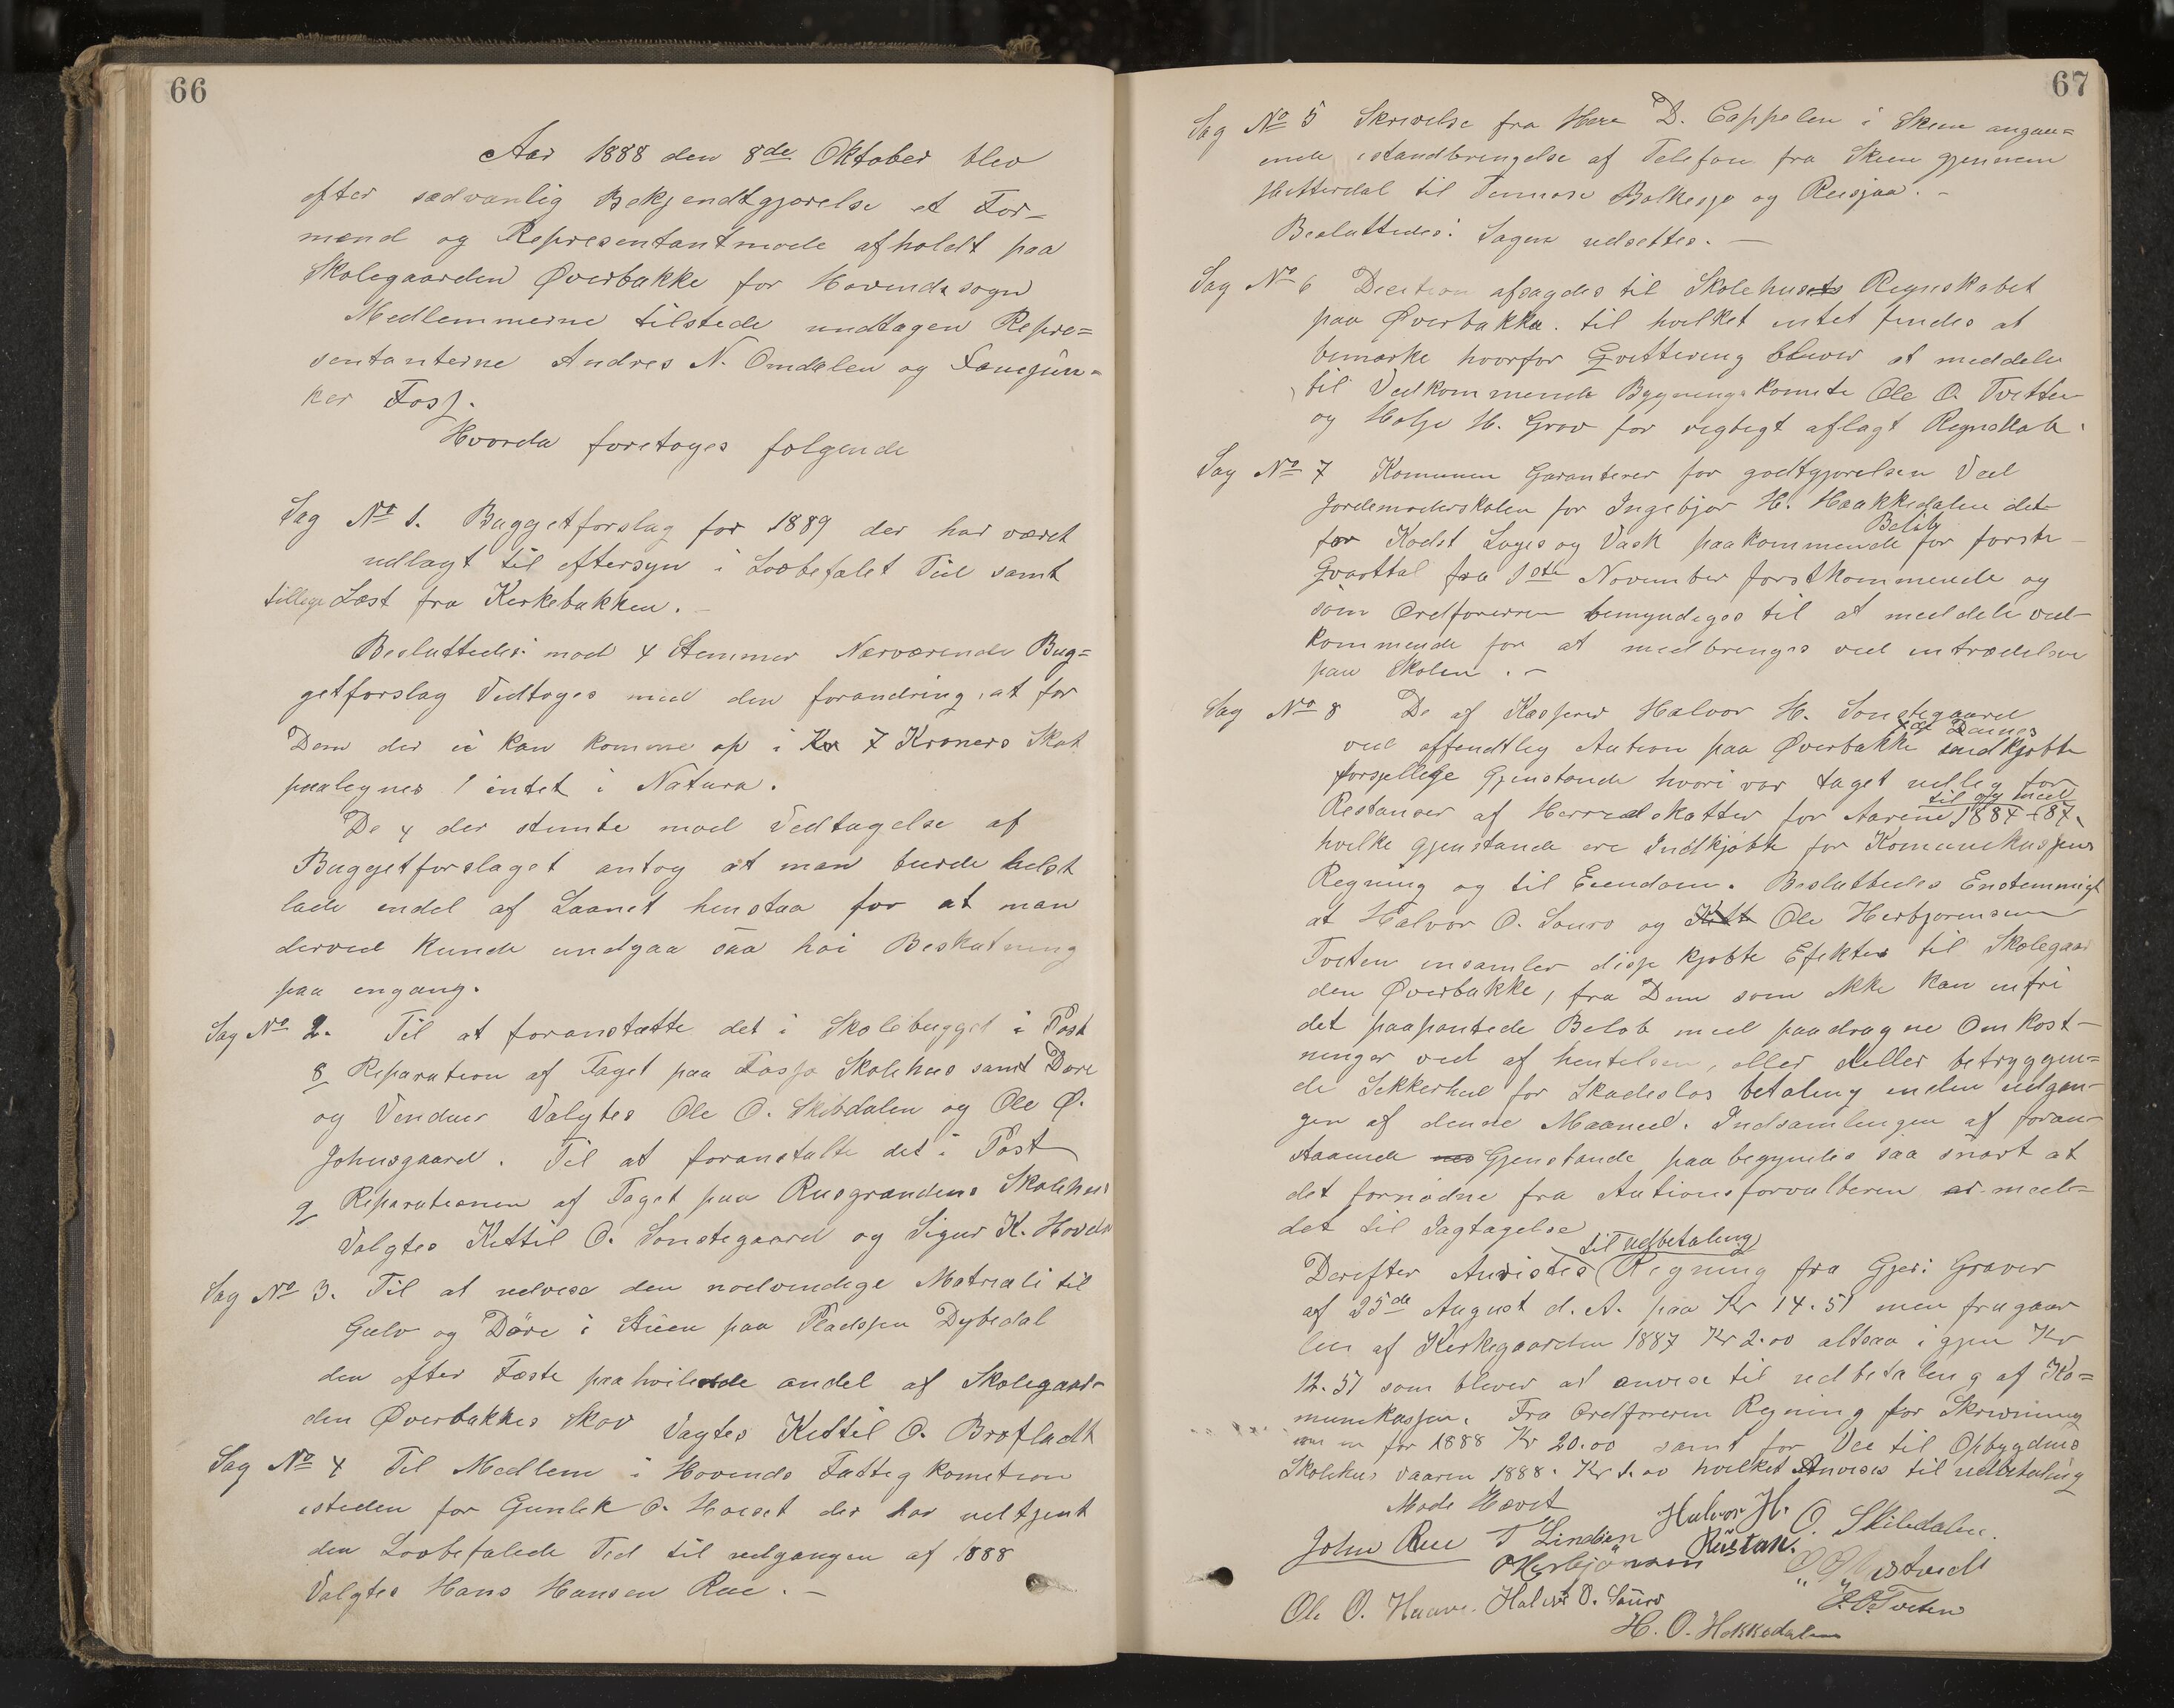 66
Aar 1888 den 8de Oktober blev
efter sædvanlig Bekjendtgjørelse et For=
mænd og Representantmøde afholdt paa
Skolegaarden Øverbakke for Hovindsogn
Medlemmerne tilstede undtagen Repre=
sentanterne Andres N. Omdalen og Fanejun=
ker Foss.
Hvorda foretoges følgende
Sag No 1. Buggetforslag for 1889 der har været
udlagt til eftersyn i Lovbefalet Tid samt
tillige Læst fra Kirkebakken. -
Besluttedes: mod 4 Stemmer Nærværende Bug=
getforslag Vedtoges med den forandring, at for
Dem der ei kan komme op i Kr 7 Kroners Skat
paalegnes intet i Natura.
De 4 der stemte mod Vedtagelse af
Buggetforslaget antog at man burde helst
lade endel af Laanet henstaa for at man
derved kunde undgaa saa høi Beskatning
paa engang.
Sag No 2. Til at foranstætte det i Skolebugget i Post
8 Reparation af Taget paa Fossø Skolehus samt Døre
og Venduer Valgtes Ole O. Skibdalen og Ole Ø.
Johnsgaard. Til at foranstalte det i Post
9 Reparationen af Taget paa Rusgrændens Skolehus
Valgtes Kittil O. Sønstegaard og Sigur K. Hovde
Sag No 3. Til at udvise den nødvendige Matriali til
Gulv og Døre i Stuen paa Pladssen Dybedal
den efter Fæste paahvilende andel af Skolegaar-
den Øverbakkes Skov Vagtes Kittil O. Brøfladt
Sag No 4 Til Medlem i Hovinds Fattigkomision
isteden for Gunlek O. Haaset der har udtjent
den Lovbefalede Tid til udgangen af 1888
Valgtes Hans Hansen Rue. -
67
Sag No 5 Skrivelse fra Herr D. Cappelen i Skien angaa=
ende istandbringelse af Telefon fra Skien gjennem
Hitterdal til Tinnoset Bolkesjø og Reisjaa. -
Besluttedes: Sagen udsættes. -
Sag No 6 Decition afsagdes til Skolehusets Regnskabet
paa Øverbakke. til hvilket intet findes at
bemærke hvorfor Qvittering bliver at meddele
til Vedkommende Bygningskomite Ole O. Tveten
og Helje H. Grav for rigtigt aflagt Regnskab.
Sag No 7 Komunen Garanterer for godtgjørelsen Ved
Jordemoderskolen for Ingebjør H. Haakkedalen det
for Kadst Loges og Vask paakommende Beløb for første
Qvarttal fra 1ste November førstkommende og
som Ordføreren bemyndeges til at meddele ved-
kommende for at medbringes ved intrædelsen
paa Skolen. -
Sag No 8 De af Kasserer Halvor H. Sønstegaard
ved offendtlig Aution paa Øverbakke indkjøbte
forsjellige Gjenstande hvori var taget udleg for
Restanser af Herredskatter for Aarene til og med 1884-87.
hvilke gjenstande ere Indkjøbt for Komunekassens
Regning og til Eiendom. Besluttedes Enstemmigt
at Halvor O. Sauro og Kitt Ole Herbjørensen
Tveten insamler disse kjøbte Efekter til Skolegaar
den Øverbakke, fra Dem som ikke kan infri
det paapantede Beløb med paadragne Omkost-
ninger ved af hentelsen, eller stiller betryggen=
de Sikkerhed for Skadesløs betaling inden udgan-
gen af denne Maaned. Indsamlingen af foran-
staaende Gjenstande paabegyndes saa snart at
det fornødne fra Autionsforvalteren er meel=
det til Iagtagelse
Derefter Anvistes til udbetaling Regning fra Gjeri Graver
af 25de August d. A. paa Kr 14.51 men fragaar
lei af Kirkegaarden 1887 Kr 2.00 altsaa igjen Kr
12.51 som bliver at anvise til udbetaling af Ko=
munekassen. Fra Ordføreren Regning for Skrivning
for 1888 Kr 20.00 samt for Vee til Opbygdens
Skolehus vaaren 1888. Kr 1.00 hvilket Anvises til udbetaling
Møde Hævet
John Rue T Lindsen Halvor H. Rustan. O. Skibdalen.
OHerbjørnsen
Ole O. Haave. Halvor O. Sauro P. O. Tveten
H. O. Hekkedalen